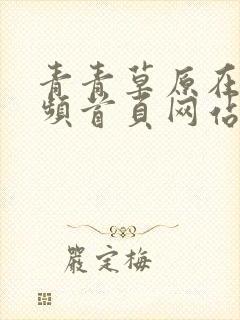 青青草原在
频首页网站
嚴定梅